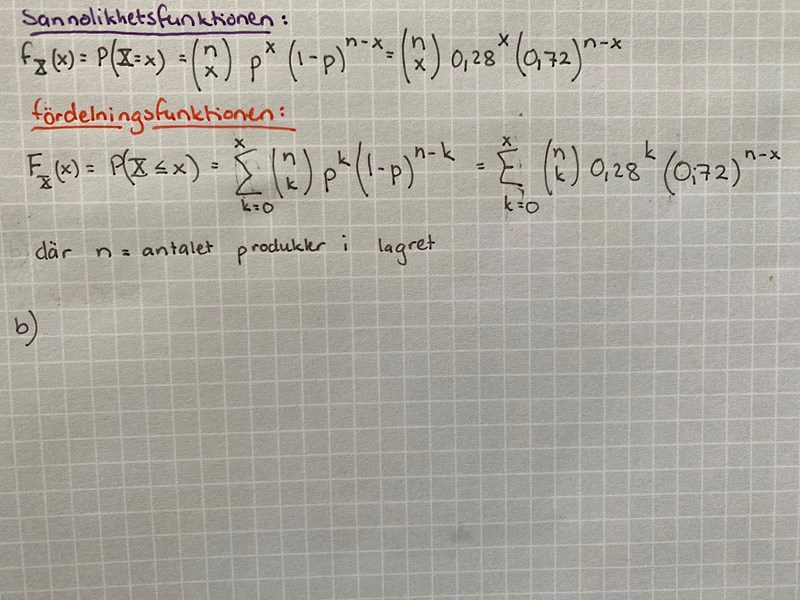 Sannolikhetsfunktionen:
f_X(x) = P(X=x) = (n x) p^x (1-p)^{n-x} = (n x) 0,28^x (0,72)^{n-x}
fördelningsfunktionen:
F_X(x) = P(X ≤ x) = ∑_{k=0}^{x} (n k) p^k (1-p)^{n-k} = ∑_{k=0}^{x} (n k) 0,28^k (0,72)^{n-x}
där n = antalet produkter i lagret
b)